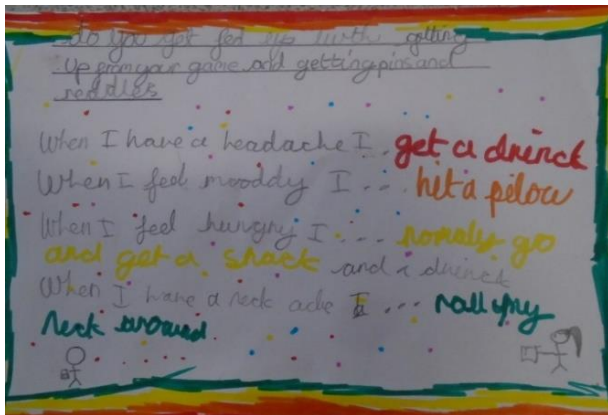 do you get fed up with getting
up from your game and getting pins and
needles
When I have a headache I... get a drinck
When I feel mooddy I... hit a pilow
When I feel hungry I.... nomaly go
and get a snack and a drinck
When I have a neck ache I... roll my
neck around